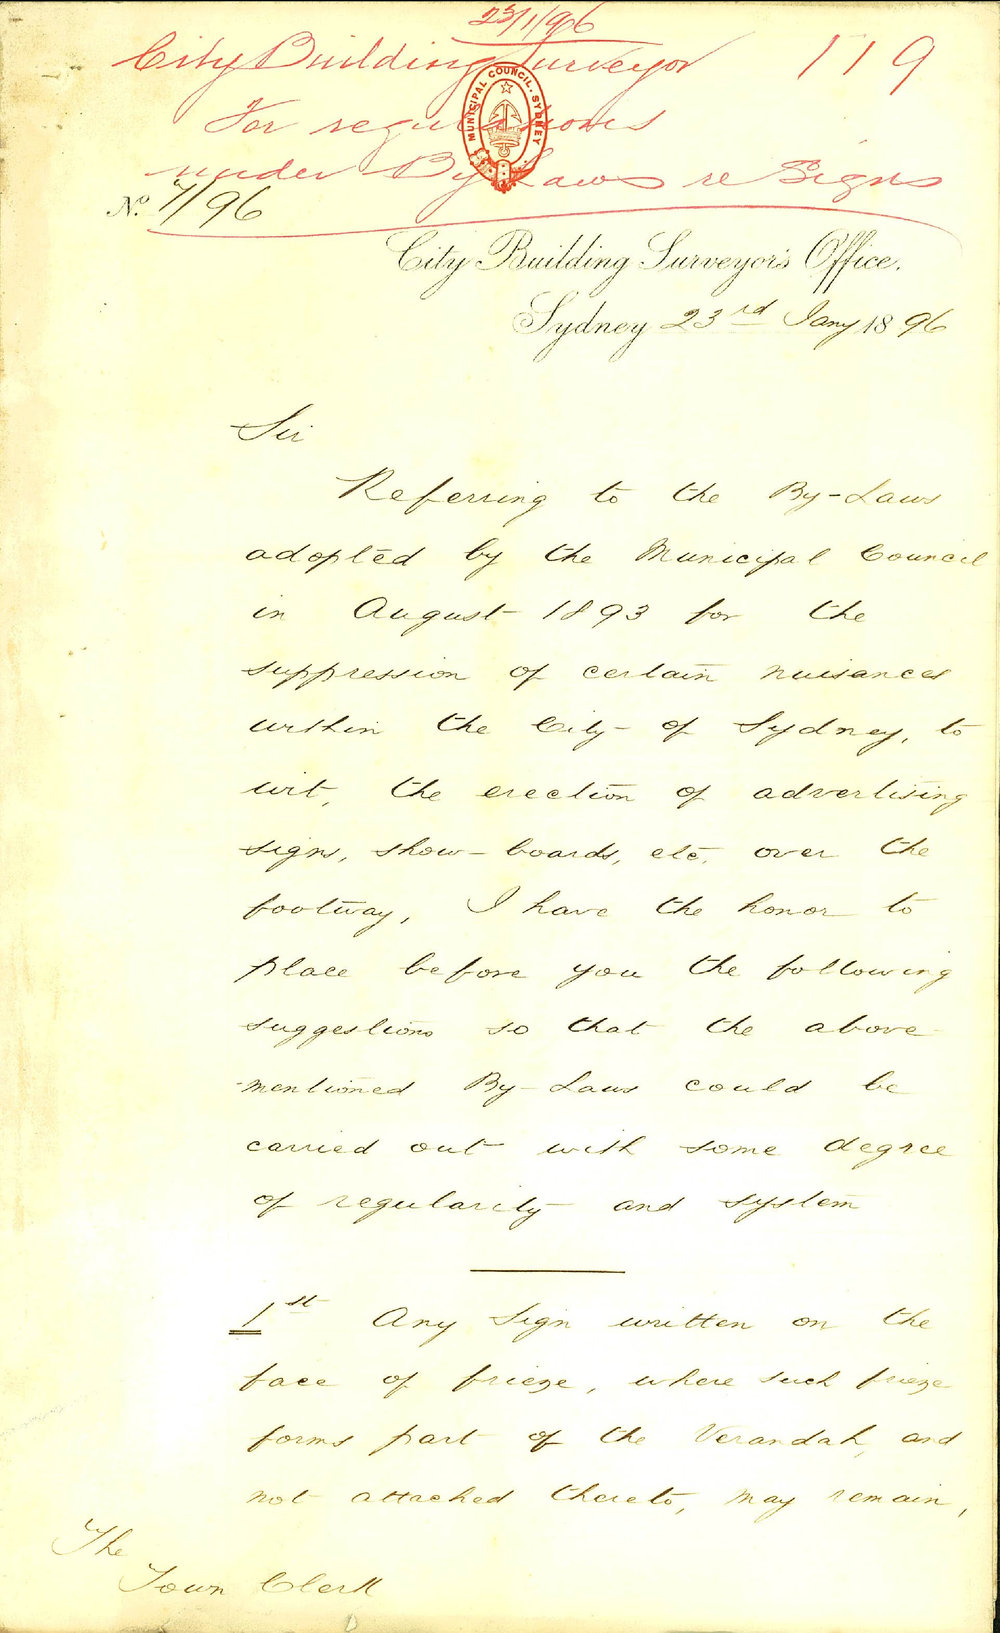 23/1/96
City Building Surveyor 119
For regulations
under By Laws re Signs
MUNICIPAL COUNCIL. SYDNEY
No. 7/96
City Building Surveyor's Office.
Sydney 23rd Jany 1896
Sir
Referring to the By-Laws
adopted by the Municipal Council
in August 1893 for the
suppression of certain nuisances
within the City of Sydney, to
wit, the erection of advertising
signs, show-boards, etc. over the
footway, I have the honor to
place before you the following
suggestions so that the above
-mentioned By-Laws could be
carried out with some degree
of regularity and system
1st Any Sign written on the
face of frieze, where such frieze
forms part of the Verandah, and
not attached thereto, may remain,
The
Town Clerk